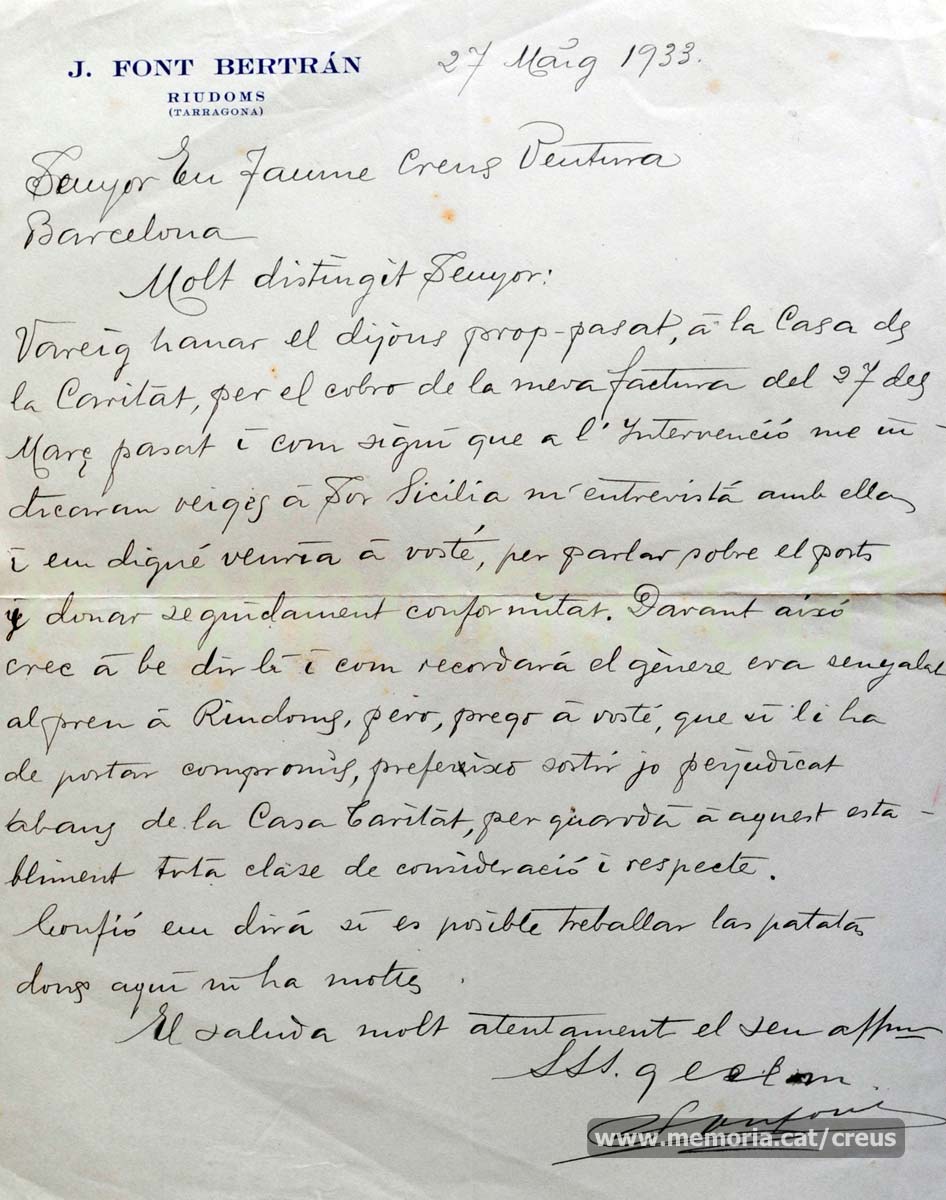 J. FONT BERTRÁN
RIUDOMS
(TARRAGONA)
27 Maig 1933.
Senyor En Jaume Creus Ventura
Barcelona
Molt distingit Senyor:
Vareig hanar el dijóus prop-pasat, á la Casa de
la Caritát, per el cobro de la meva factura del 27 del
Març pasat i com sigui que a l'Intervenció me in-
dicaran veigés á Sor Sicilia m'entrevistá amb ella
i em digué venría á vosté, per parlar sobre el ports
y donar seguidament conformitat. Davant aixó
crec á be dir li i com recordará el gènere era senyalat
al preu á Riudoms, peró, prego á vosté, que si li ha
de portar compromis, prefereixo sortir jo perjudicat
abans de la Casa Caritát, per guardá á aquest esta-
bliment tota clase de consideració i respecte.
Confió em dirá si es posible treballar las patatas
dons aquí ni ha moltes.
El saluda molt atentament el seu affm
SSS. q e s l m.
www.memoria.cat/creus